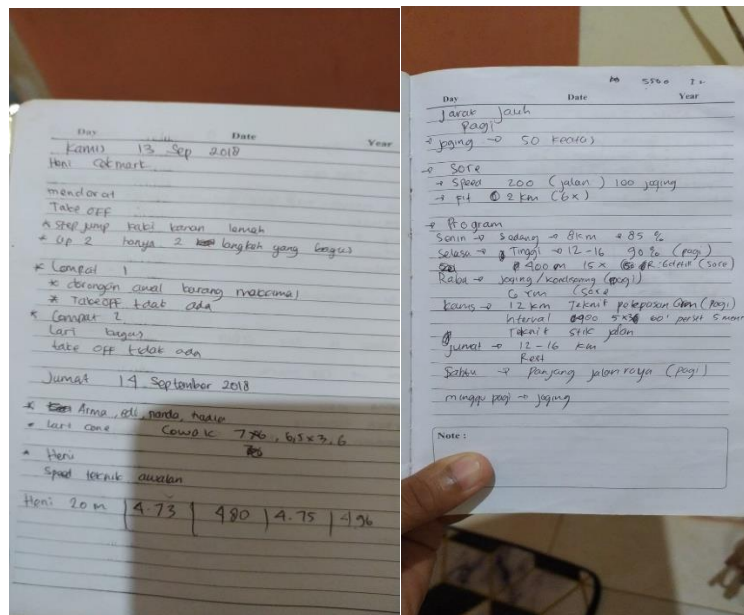 Day Date Year
Kamis 13 Sep 2018
Heni
mendarat
Take OFF
* Step jump kaki kanan lemah
* Up 2 hanya 2 langkah yang bagus
* Lompat 1
* dorongan awal kurang maksimal
* Take OFF tdak ada
* Lompat 2
Lari bagus
take off tidak ada
Jumat 14 September 2018
* Arma, edi, nando,
* Lari cone Cowok 7x6, 6,5x3,6
* Heni
Speed teknik awalan
Heni 20 m | 4.73 | 480 | 4.75 | 496
5500
Day Date Year
Jarak Jauh
Pagi
→ joging → 50 keatas
→ Sore
→ Speed 200 (jalan) 100 joging
→ Fit 2 km (6x)
→ Program
Senin → Sedang → 8km → 85 %
Selasa → Tinggi → 12-16 90% (pagi)
400 m 15x (Sore)
Rabu → joging / (pagi)
6 km (sore
Kamis → 12 km Teknik (pagi)
interval 5 menit
Teknik jalan
Jumat → 12-16 km
Rest
Sabtu → Panjang jalan raya (pagi)
minggu pagi → joging
Note :